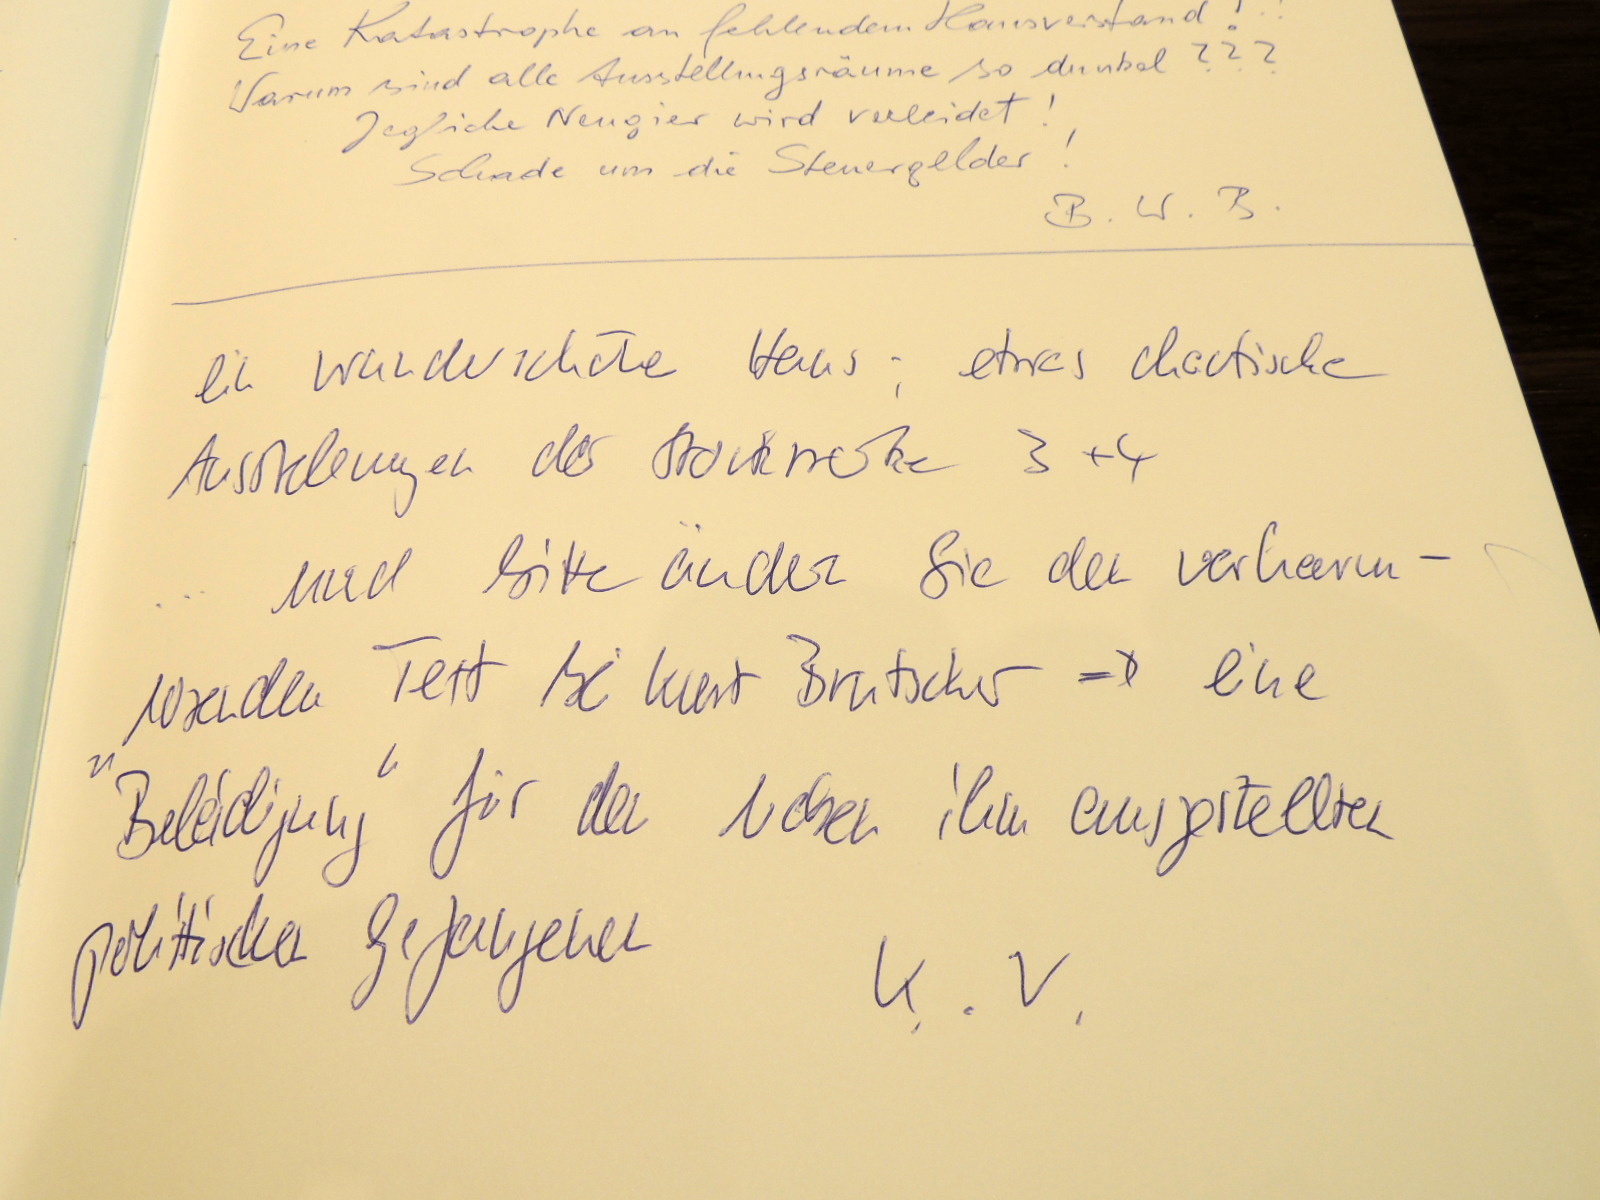 Eine Katastrophe an fehlendem Hausverstand!!!
Warum sind alle Ausstellungsräume so dunkel???
Jegliche Neugier wird verleidet!
Schade um die Steuergelder!
B. W. B.
ein wunderschöne Haus; etwas chaotische
Ausstelungen der Stockwerke 3+4
... und bitte ändern Sie den verharm-
losenden Text bei Kurt Brutscher => eine
"Beleidigung" für den neben ihm ausgestellten
politischen Gefangenen
K. V.